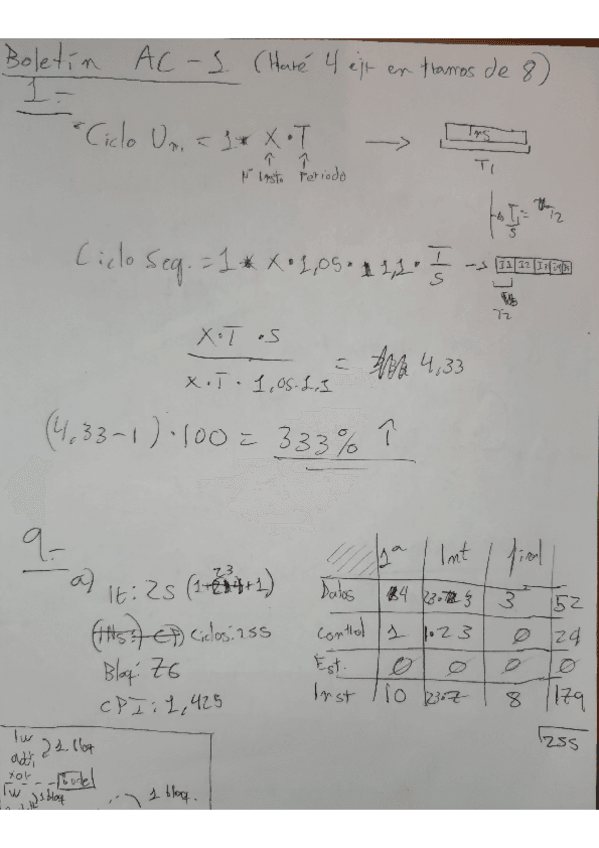 Boletín AC-1 (Haré 4 ejr en tramos de 8)
1.-
Ciclo Uni. = 1 * X · T → Ins
Nº Inst. Periodo T1
T1/5 = T2
Ciclo Seg. = 1 * X · 1,05 · 1,1 · T/5 → I1 I2 I3 I4
T2
X·T·5
/ X·T·1,05·1,1 = 4,33
(4,33-1)·100 = 333% ↑
9.-
a) It: 25 (1+23+1)
Ciclos: 255
Bloq: 76
CPI: 1,425
1ª Int final
Datos 4 3 52
Control 1 1·23 0 24
Est. 0 0 0 0
Inst 10 23·7 8 179
255
lw
addi 1 bloq
xor
lw 1 bloq
1 bloq.